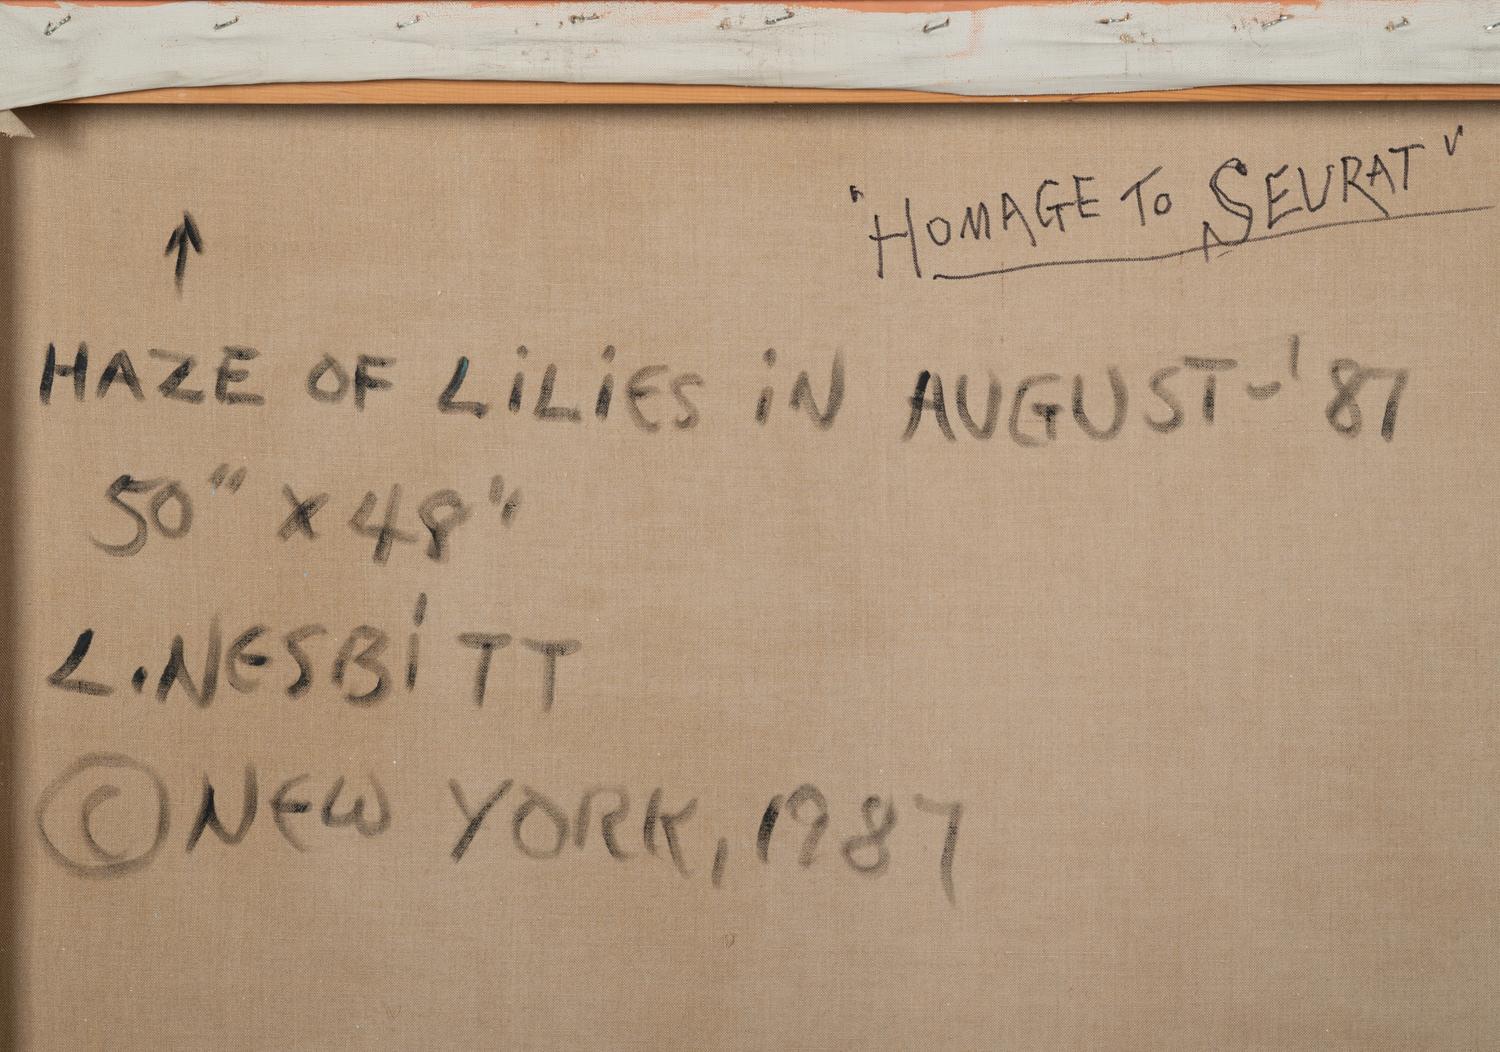 "HOMAGE TO SEURAT"
↑
HAZE OF LiLiES iN AUGUST-'87
50" x 48"
L. NESBiTT
© NEW YORK, 1987